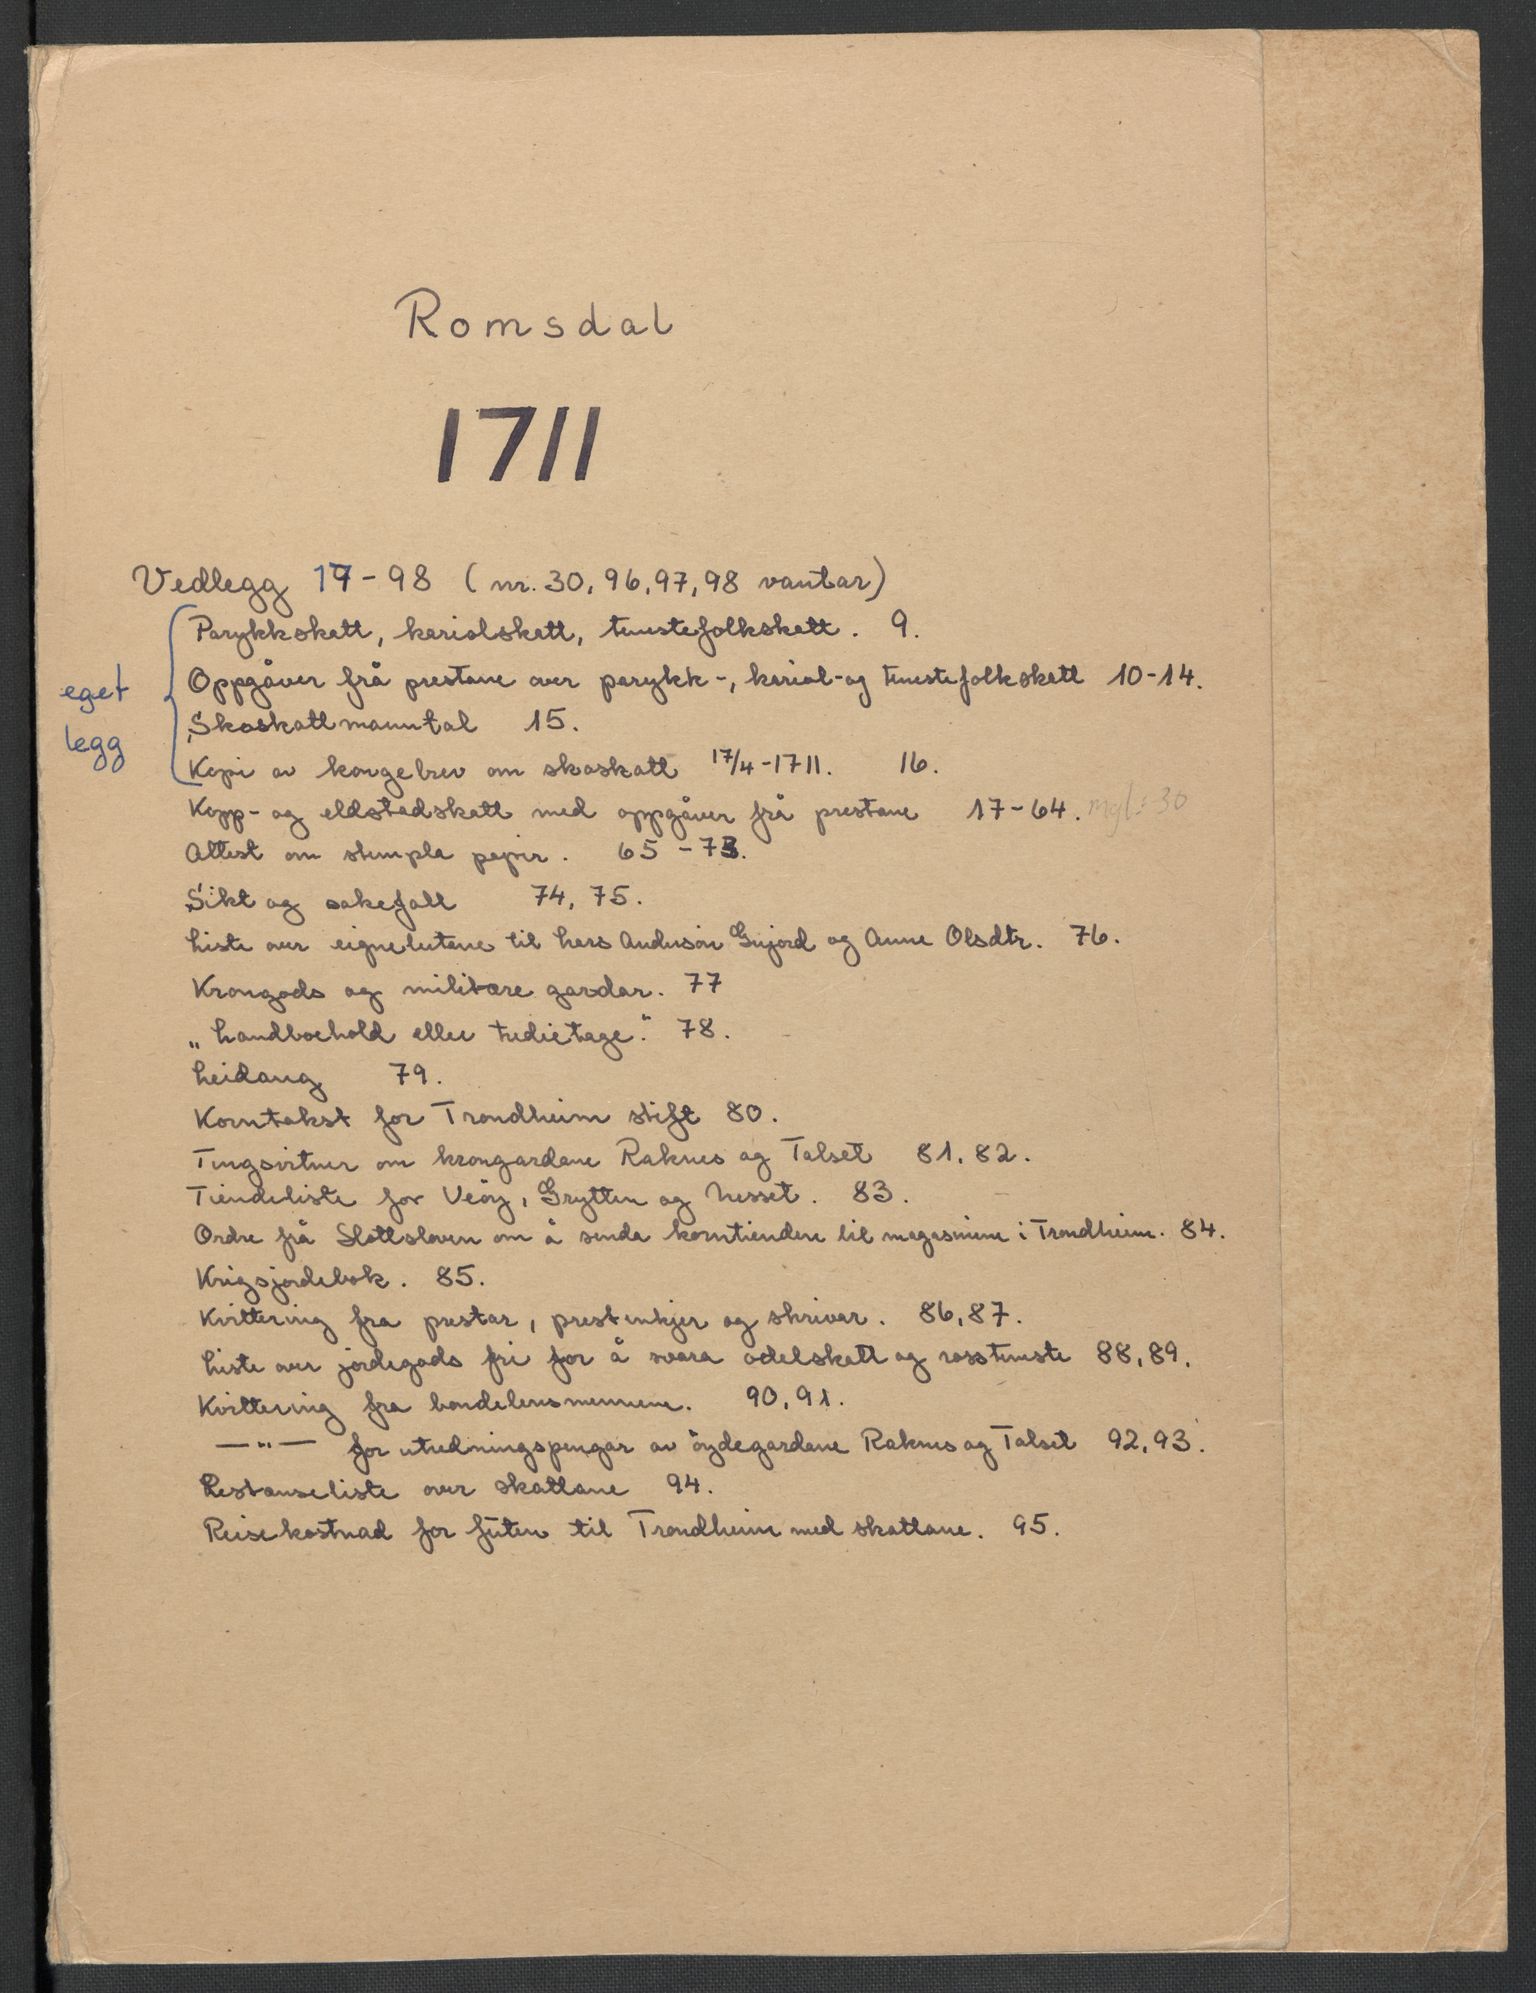 Romsdal
1711
Vedlegg 17-98 (nr. 30, 96, 97, 98 vantar)
Parykkskatt, karjolskatt, tenestefolkskatt. 9.
Oppgåver frå prestane over parykk-, karjol- og tenestefolkskatt 10-14.
eget
legg
Skoskattmanntal 15.
Kopi av kongebrev om skoskatt 17/4-1711. 16.
Kopp- og eldstedskatt med oppgåver frå prestane 17-64. mgl: 30
Attest om stempla papir. 65-73.
Sikt og sakefall 74, 75.
Liste over eignelutane til Lars Anderson Gujord og Anne Olsdtr. 76.
Krongods og militære gardar. 77
„Landboehold eller tredietage." 78.
Leidang 79.
Korntakst for Trondheim stift 80.
Tingsvitner om krongardane Raknes og Talset 81, 82.
Tiendeliste for Veøy, Grytten og Nesset. 83.
Ordre frå Slottsloven om å senda korntienden til magasinene i Trondheim. 84.
Krigsjordebok. 85.
Kvittering fra prestar, prestenkjer og skrivar. 86, 87.
Liste over jordegods fri for å svara odelskatt og rosstjeneste 88, 89.
Kvittering fra bondelensmennene. 90, 91.
—"— for utredningspengar av øydegardane Raknes og Talset 92, 93.
Restanseliste over skattane 94.
Reisekostnad for futen til Trondheim med skattane. 95.